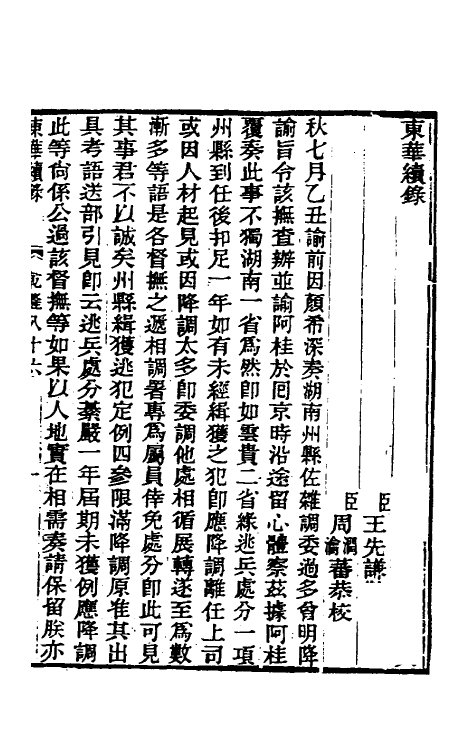 東華續錄
臣王先謙
臣周潤蕃周渝蕃恭校
秋七月乙丑諭前因顏希深奏湖南州縣佐雜調委過多曾明降
諭旨令該撫查辦並諭阿桂於囘京時沿途留心體察茲據阿桂
覆奏此事不獨湖南一省爲然卽如雲貴二省緣逃兵處分一項
州縣到任後扣足一年如有未經緝獲之犯卽應降調離任上司
或因人材起見或因降調太多卽委調他處相循展轉遂至爲數
漸多等語是各督撫之遞相調署專爲屬員倖免處分卽此可見
其事君不以誠矣州縣緝獲逃犯定例四參限滿降調原准其出
具考語送部引見卽云逃兵處分綦嚴一年屆期未獲例應降調
此等尙係公過該督撫等如果以人地實在相需奏請保留朕亦
東華續錄 乾隆八十六 一